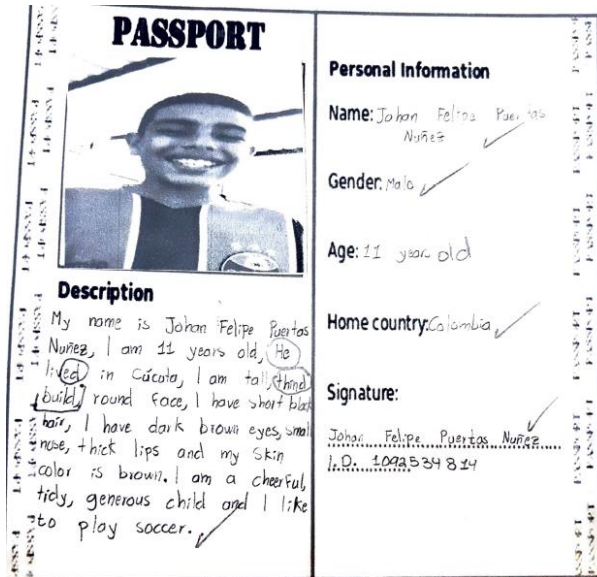 PASSPORT
Description
My name is Johan Felipe Puertas
Nuñez, I am 11 years old, He
lived in Cúcuta, I am tall, thind
build, round face, I have short black
hair, I have dark brown eyes, small
nose, thick lips and my skin
color is brown. I am a cheerful,
tidy, generous child and I like
to play soccer.
Personal Information
Name: Johan Felipe Puertas
Nuñez
Gender: Male
Age: 11 years old
Home country: Colombia
Signature:
Johan Felipe Puertas Nuñez
I.D. 1092534814